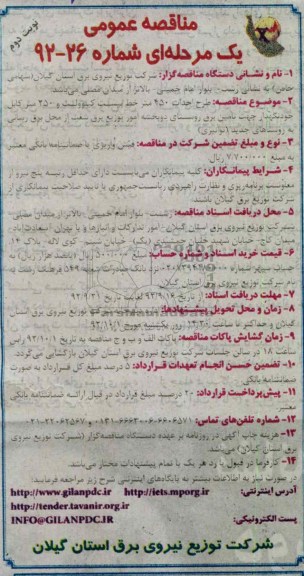 نوبت دوم
مناقصه عمومی
یک مرحله‌ای شماره ۲۶-۹۲
۱- نام و نشانی دستگاه مناقصه‌گزار: شرکت توزیع نیروی برق استان گیلان (سهامی
خاص) به نشانی رشت- بلوار امام خمینی- بالاتر از میدان مصلی می‌باشد.
۲- موضوع مناقصه: طرح احداث ۹۵۰ متر خط بیست کیلوولت و ۲۵۰ متر کابل
خودنگهدار جهت تأمین برق روستای
به روستاهای جدید (توانیر)
۳- نوع و مبلغ تضمین شرکت در مناقصه: فیش واریزی یا ضمانتنامه بانکی معتبر
به مبلغ ۷/۷۰۰/۰۰۰ ریال
۴- شرایط پیمانکاران: کلیه پیمانکاران می‌بایست دارای حداقل رتبه پنج نیرو از
معاونت برنامه‌ریزی و نظارت راهبردی ریاست‌جمهوری یا تایید صلاحیت پیمانکاری از
شرکت توزیع برق گیلان باشند.
۵- محل دریافت اسناد مناقصه: رشت- بلوار امام خمینی- بالاتر از میدان مصلی-
شرکت توزیع نیروی برق استان گیلان- امور تدارکات و انبارها و یا تهران
۶- قیمت خرید اسناد و شماره حساب: ۵۰۰/۰۰۰ ریال (پانصد هزار ریال) به
بنام شرکت توزیع نیروی برق استان گیلان
۷- مهلت دریافت اسناد: از تاریخ ۹۲/۹/۱۶ لغایت تاریخ
۸- زمان و محل تحویل پیشنهادها: شرکت توزیع نیروی برق استان
گیلان و حداکثر تا ساعت ۱۴:۳۰ روز یکشنبه مورخ ۹۲/۱۰/۱
۹- زمان گشایش پاکات مناقصه: پاکات الف و ب و ج مناقصه به تاریخ ۹۲/۱۰/۱ رأس
ساعت ۱۸ در سالن جلسات شرکت توزیع نیروی برق استان گیلان بازگشایی می‌گردد.
۱۰- تضمین حسن انجام تعهدات قرارداد: ۵ درصد مبلغ کل قرارداد به صورت
ضمانتنامه بانکی
۱۱- پیش‌پرداخت قرارداد: ۲۰ درصد مبلغ قرارداد در قبال ارائه ضمانتنامه بانکی
معتبر
۱۲- شماره تلفن‌های تماس:
۱۳- هزینه چاپ آگهی در روزنامه بر عهده دستگاه مناقصه‌گزار (شرکت توزیع نیروی
برق استان گیلان) می‌باشد.
۱۴- کارفرما در قبول یا رد هر یک یا تمام پیشنهادات مختار می‌باشد.
در صورت نیاز به اطلاعات بیشتر به پایگاه‌های اینترنتی شرح زیر مراجعه فرمایید:
آدرس اینترنتی: http://iets.mporg.ir http://www.gilanpdc.ir
http://tender.tavanir.org.ir
پست الکترونیکی: INFO@GILANPDC.IR
شرکت توزیع نیروی برق استان گیلان